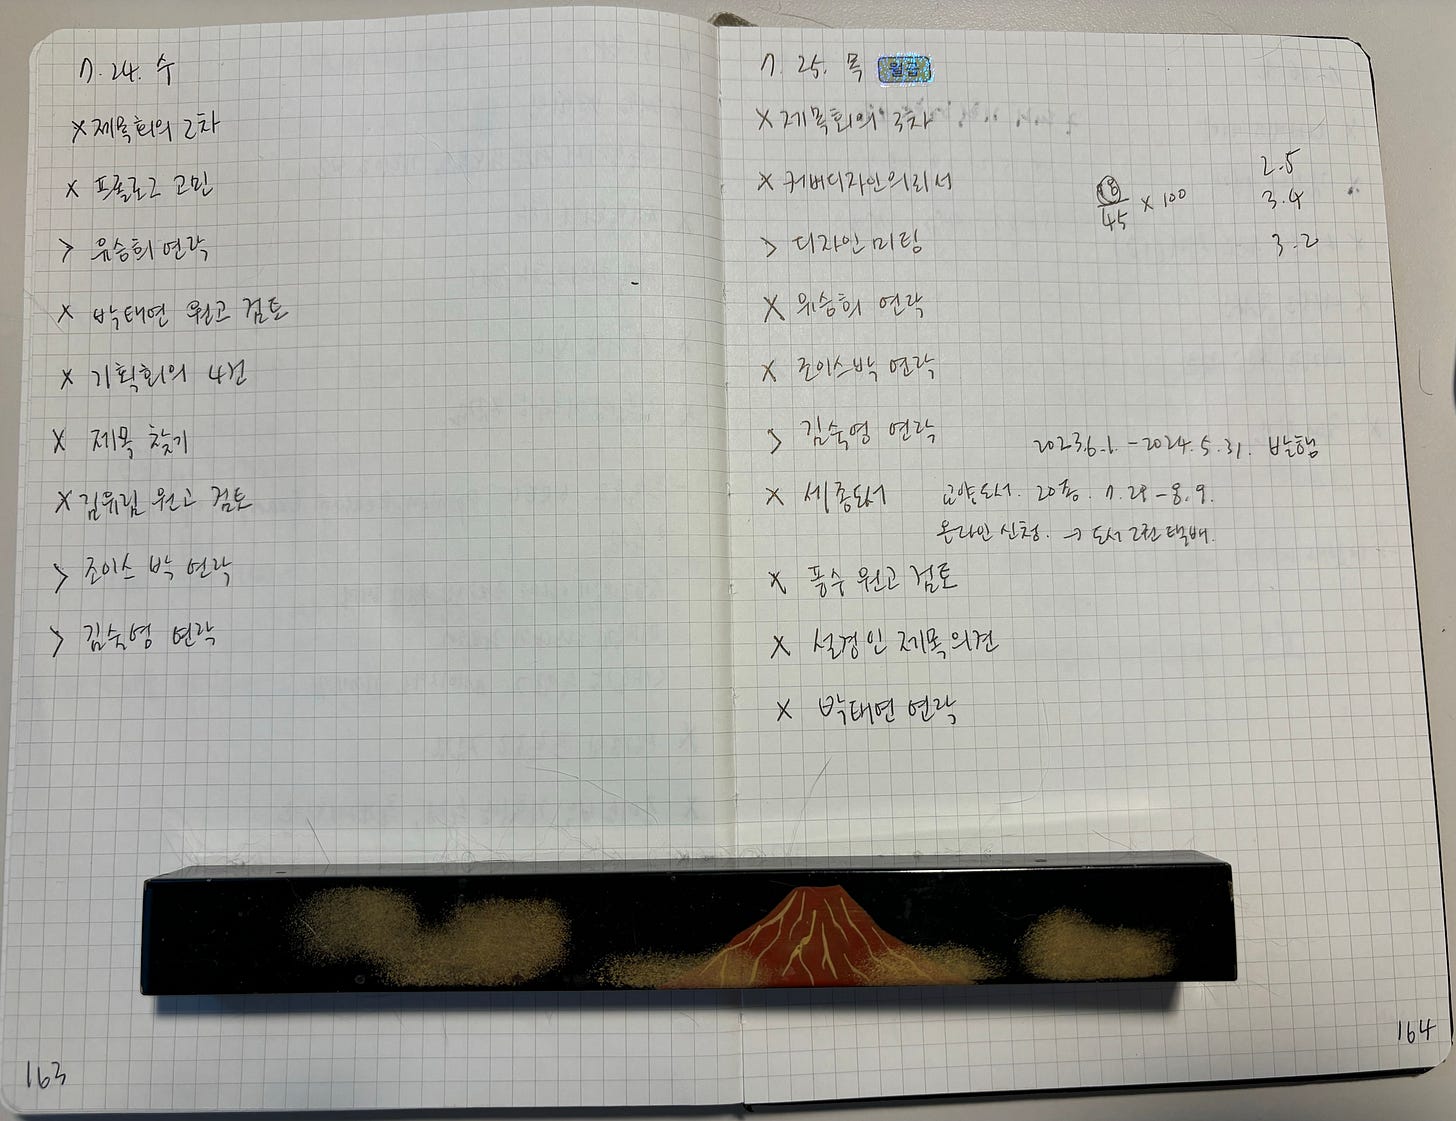 7. 24. 수
x 제목회의 2차
x 프롤로그 고민
> 유승희 연락
x 박태연 원고 검토
x 기획회의 4건
x 제목 찾기
x 김유림 원고 검토
> 조이스 박 연락
> 김숙영 연락
163
7. 25. 목 월급
x 제목회의 3차
x 커버디자인의뢰서
> 디자인 미팅
x 유승희 연락
x 조이스박 연락
> 김숙영 연락
x 세종도서
2023.6.1. - 2024.5.31. 발행
교양도서. 20종. 7.29 - 8.9.
온라인 신청. → 도서 2권 택배.
x 풍수 원고 검토
x 설경인 제목의견
x 박태연 연락
18/45 x 100
2.5
3.4
3.2
164